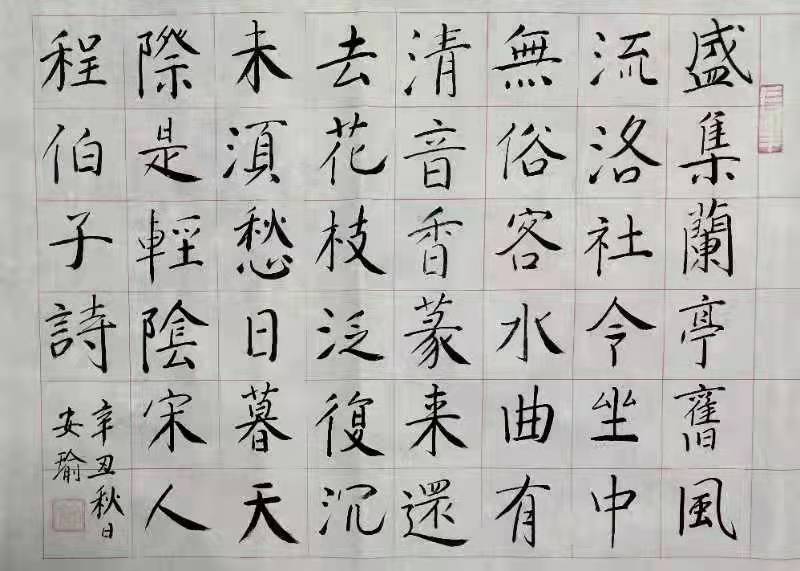 盛集蘭亭舊風
流洛社令坐中
無俗客水曲有
清音香篆来還
去花枝泛復沉
未須愁日暮天
際是輕陰宋人
程伯子詩
辛丑秋日
安瑜